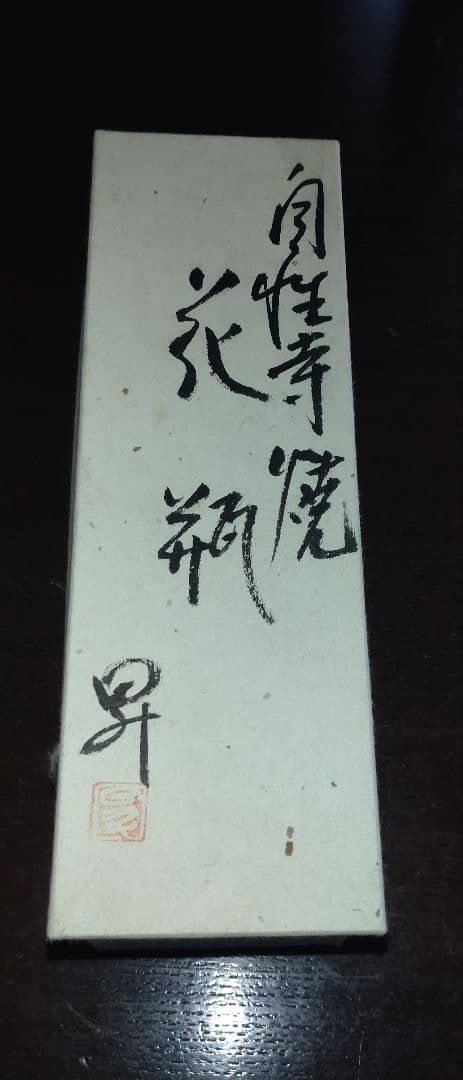 自性寺焼
花瓶
昇